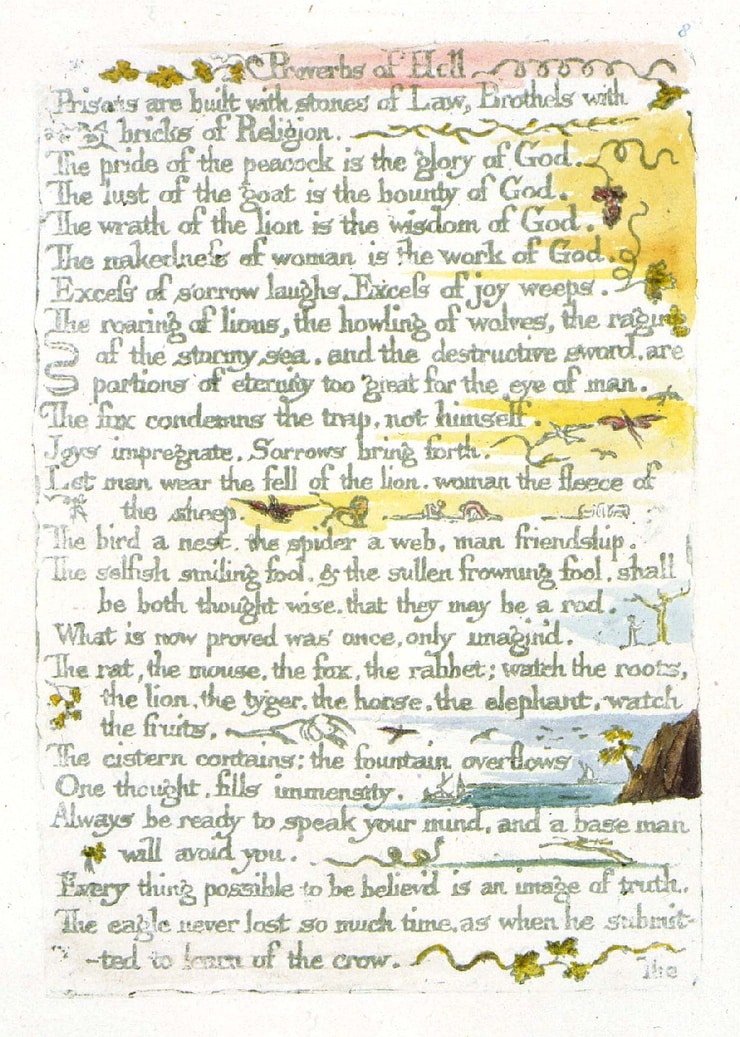 8
Proverbs of Hell
Prisons are built with stones of Law, Brothels with
bricks of Religion.
The pride of the peacock is the glory of God.
The lust of the goat is the bounty of God.
The wrath of the lion is the wisdom of God.
The nakedneſs of woman is the work of God.
Exceſs of sorrow laughs. Exceſs of joy weeps.
The roaring of lions, the howling of wolves, the raging
of the stormy sea, and the destructive sword, are
portions of eternity too great for the eye of man.
The fox condemns the trap, not himself.
Joys impregnate. Sorrows bring forth.
Let man wear the fell of the lion. woman the fleece of
the sheep.
The bird a nest. the spider a web, man friendship.
The selfish smiling fool, & the sullen frowning fool, shall
be both thought wise, that they may be a rod.
What is now proved was once, only imagin'd.
The rat, the mouse, the fox, the rabbet; watch the roots,
the lion, the tyger, the horse, the elephant, watch
the fruits.
The cistern contains: the fountain overflows
One thought, fills immensity.
Always be ready to speak your mind, and a base man
will avoid you.
Every thing possible to be believ'd is an image of truth.
The eagle never lost so much time, as when he submit-
-ted to learn of the crow.
The